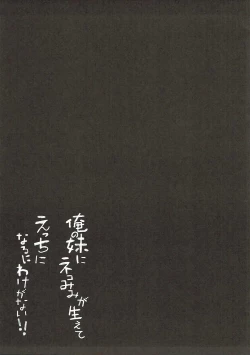 俺の妹に
ネコミミが生えて
えっちに
なるわけがない!!